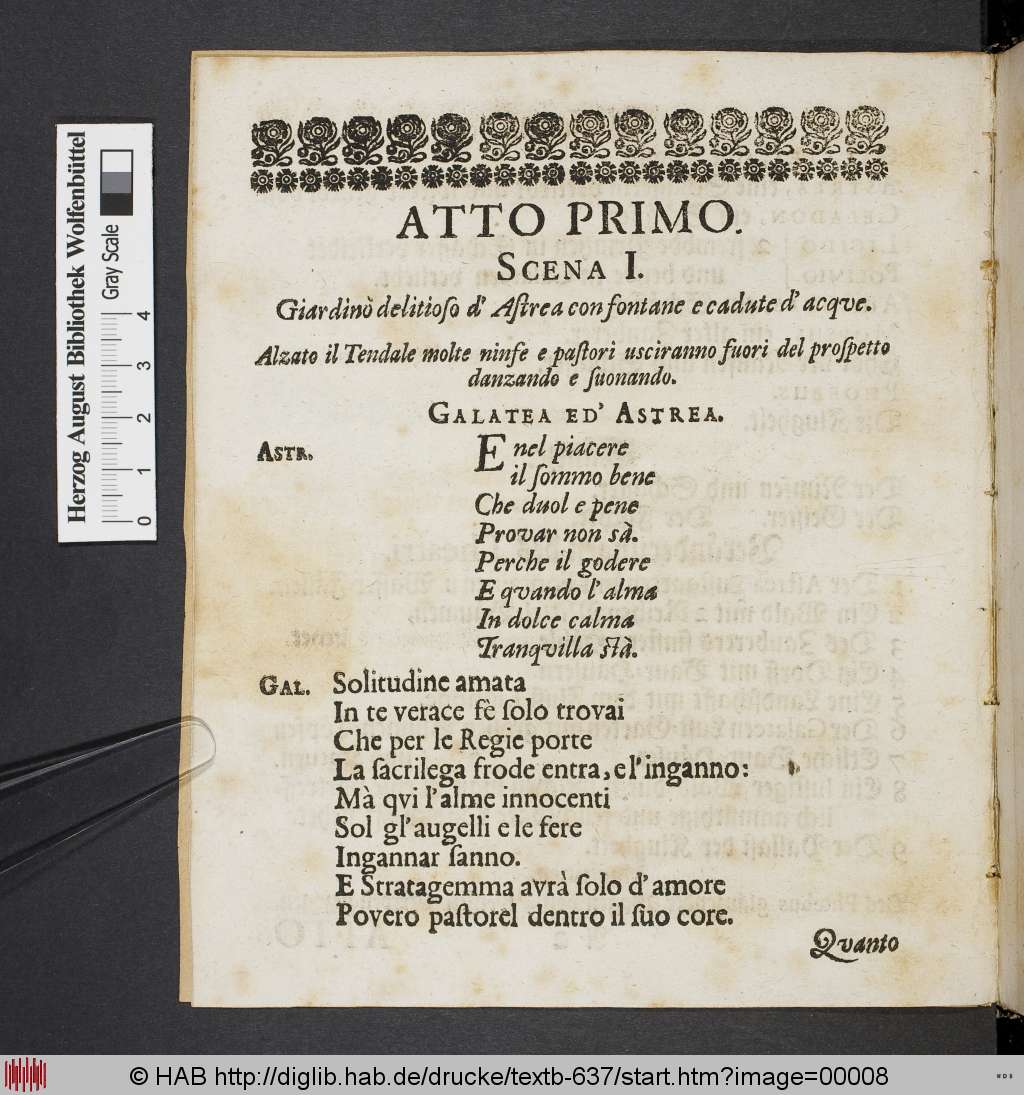 ATTO PRIMO.
SCENA I.
Giardinò delitioſo d' Aſtrea con fontane e cadute d' acqve.
Alzato il Tendale molte ninfe e paſtori usciranno fuori del proſpetto
danzando e ſuonando.
GALATEA ED' ASTREA.
ASTR. E nel piacere
il ſommo bene
Che duol e pene
Provar non sà.
Perche il godere
E qvando l' alma
In dolce calma
Tranqvilla ſtà.
GAL. Solitudine amata
In te verace fè ſolo trovai
Che per le Regie porte
La ſacrilega frode entra, e l'inganno:
Mà qvi l'alme innocenti
Sol gl'augelli e le fere
Ingannar ſanno.
E Stratagemma avrà ſolo d'amore
Povero paſtorel dentro il ſuo core.
Qvanto
Herzog August Bibliothek Wolfenbüttel
Gray Scale
0 1 2 3 4
© HAB http://diglib.hab.de/drucke/textb-637/start.htm?image=00008
WDB